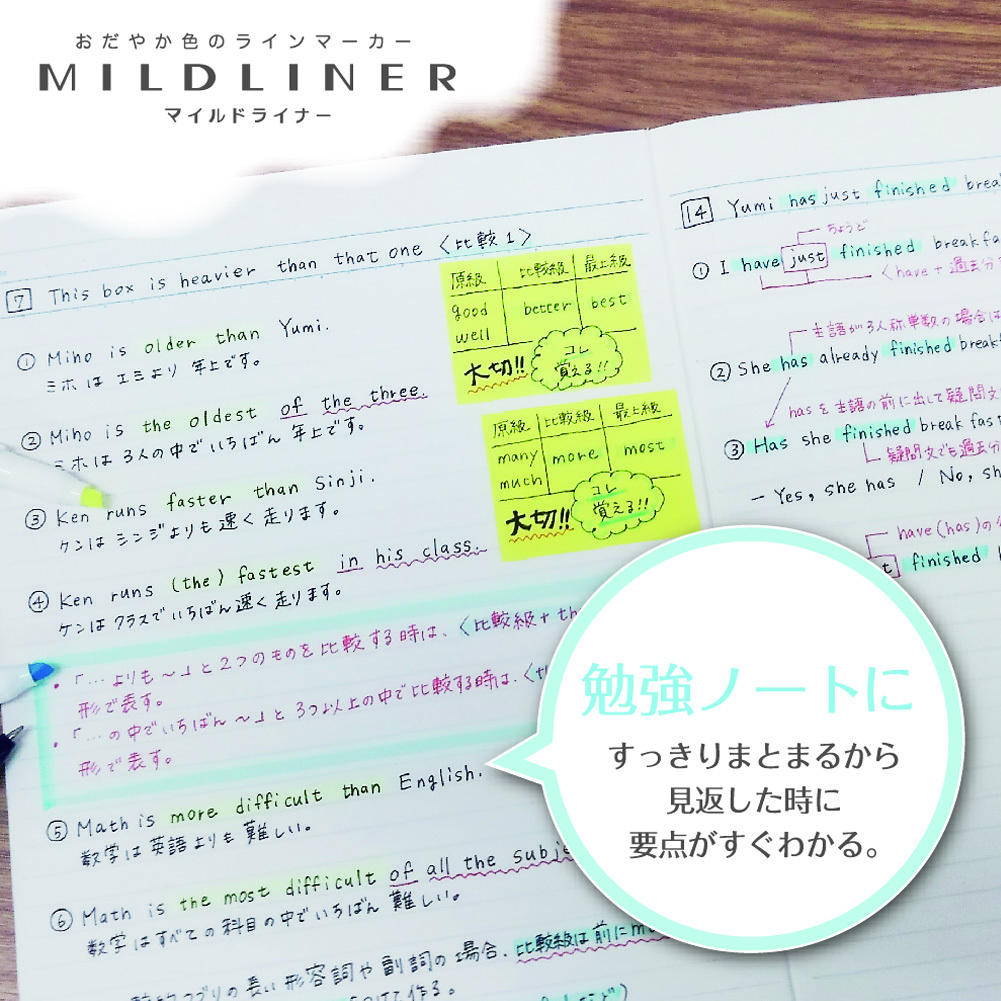 おだやか色のラインマーカー
MILDLINER
マイルドライナー
7 This box is heavier than that one 〈比較1〉
① Miho is older than Yumi.
ミホは エミより 年上です。
② Miho is the oldest of the three.
ミホは 3人の中でいちばん 年上です。
③ Ken runs faster than Sinji.
ケンは シンジよりも 速く 走ります。
④ Ken runs (the) fastest in his class.
ケンは クラスでいちばん 速く 走ります。
・「…よりも〜」と2つのものを比較する時は、〈比較級+th
形で表す。
・「…の中でいちばん〜」と3つ以上の中で比較する時は、〈th
形で表す。
⑤ Math is more difficult than English.
数学は英語よりも 難しい。
⑥ Math is the most difficult of all the subje
数学はすべての科目の中でいちばん 難しい。
の長い形容詞や副詞の場合、比較級は前にm
て作る。
原級 比較級 最上級
good better best
well
大切!! コレ
覚える!!
原級 比較級 最上級
many more most
much
大切!! コレ
覚える!!
14 Yumi has just finished brea
ちょうど
① I have just finished breakfa
〈have+過去分
主語が3人称単数の場合は
② She has already finished break
hasを主語の前に出して疑問文
③ Has she finished breakfast
疑問文でも過去分
― Yes, she has / No, sh
have(has)の
t finished
勉強ノートに
すっきりまとまるから
見返した時に
要点がすぐわかる。